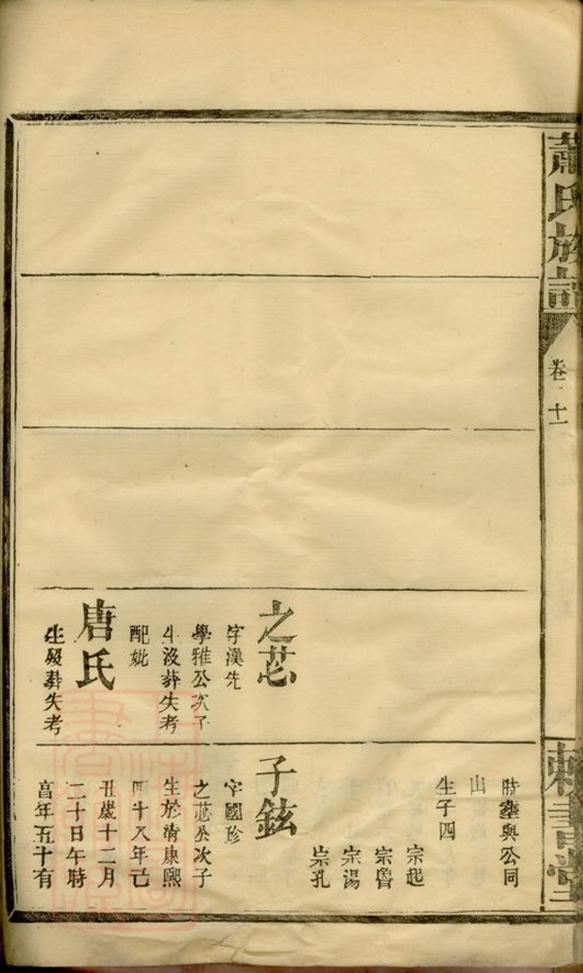 蕭氏族譜
卷十一
敕書堂
之芯
字漢先
學雅公次子
生沒葬失考
配妣
唐氏
生歿葬失考
時塟與公同
山
生子四
宗起
宗魯
宗湯
宗孔
子鉉
字國珍
之芯公次子
生於清康熙
四十八年己
丑歲十二月
二十日午時
享年五十有